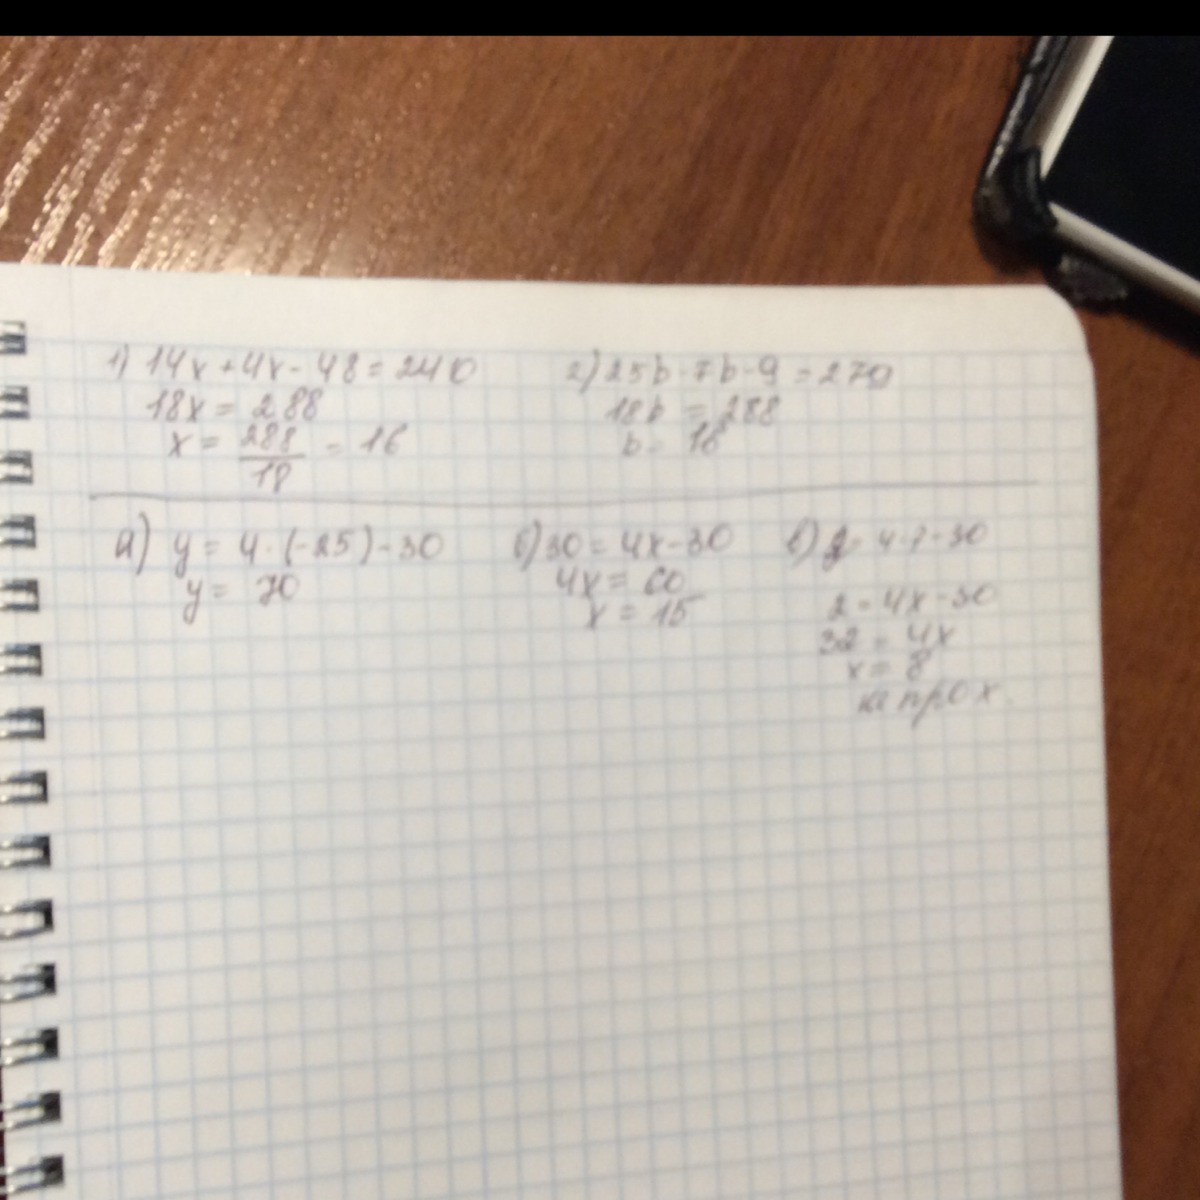 1) 14x + 4x - 48 = 240
18x = 288
x = 288/18 = 16
2) 25b - 7b - 9 = 279
18b = 288
b = 16
а) y = 4 · (-25) - 30
y = 70
б) 30 = 4x - 30
4x = 60
x = 15
в)
2 = 4x - 30
32 = 4x
x = 8
не прох.